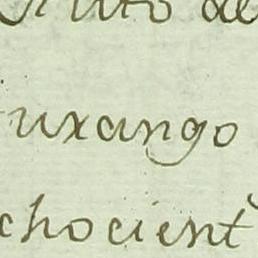 de
uxango
chocient